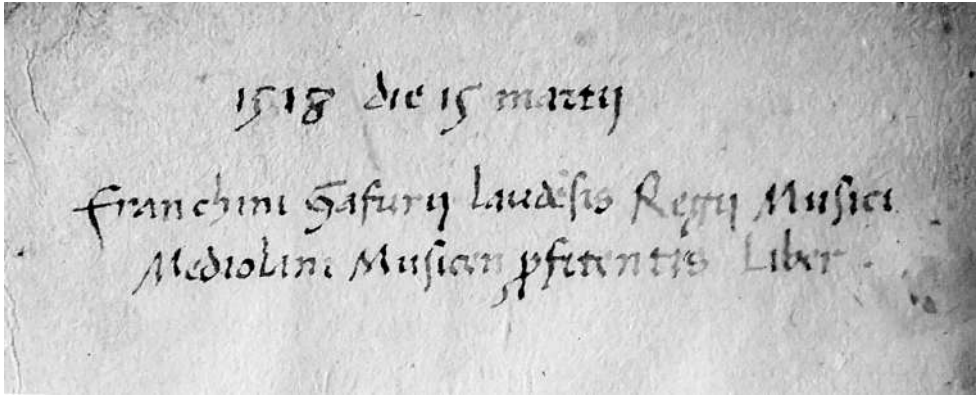 1518 die 15 martij
Franchini Gafurij laudēsis Regij Musici
Mediolani Musicen ꝓfitentis Liber.